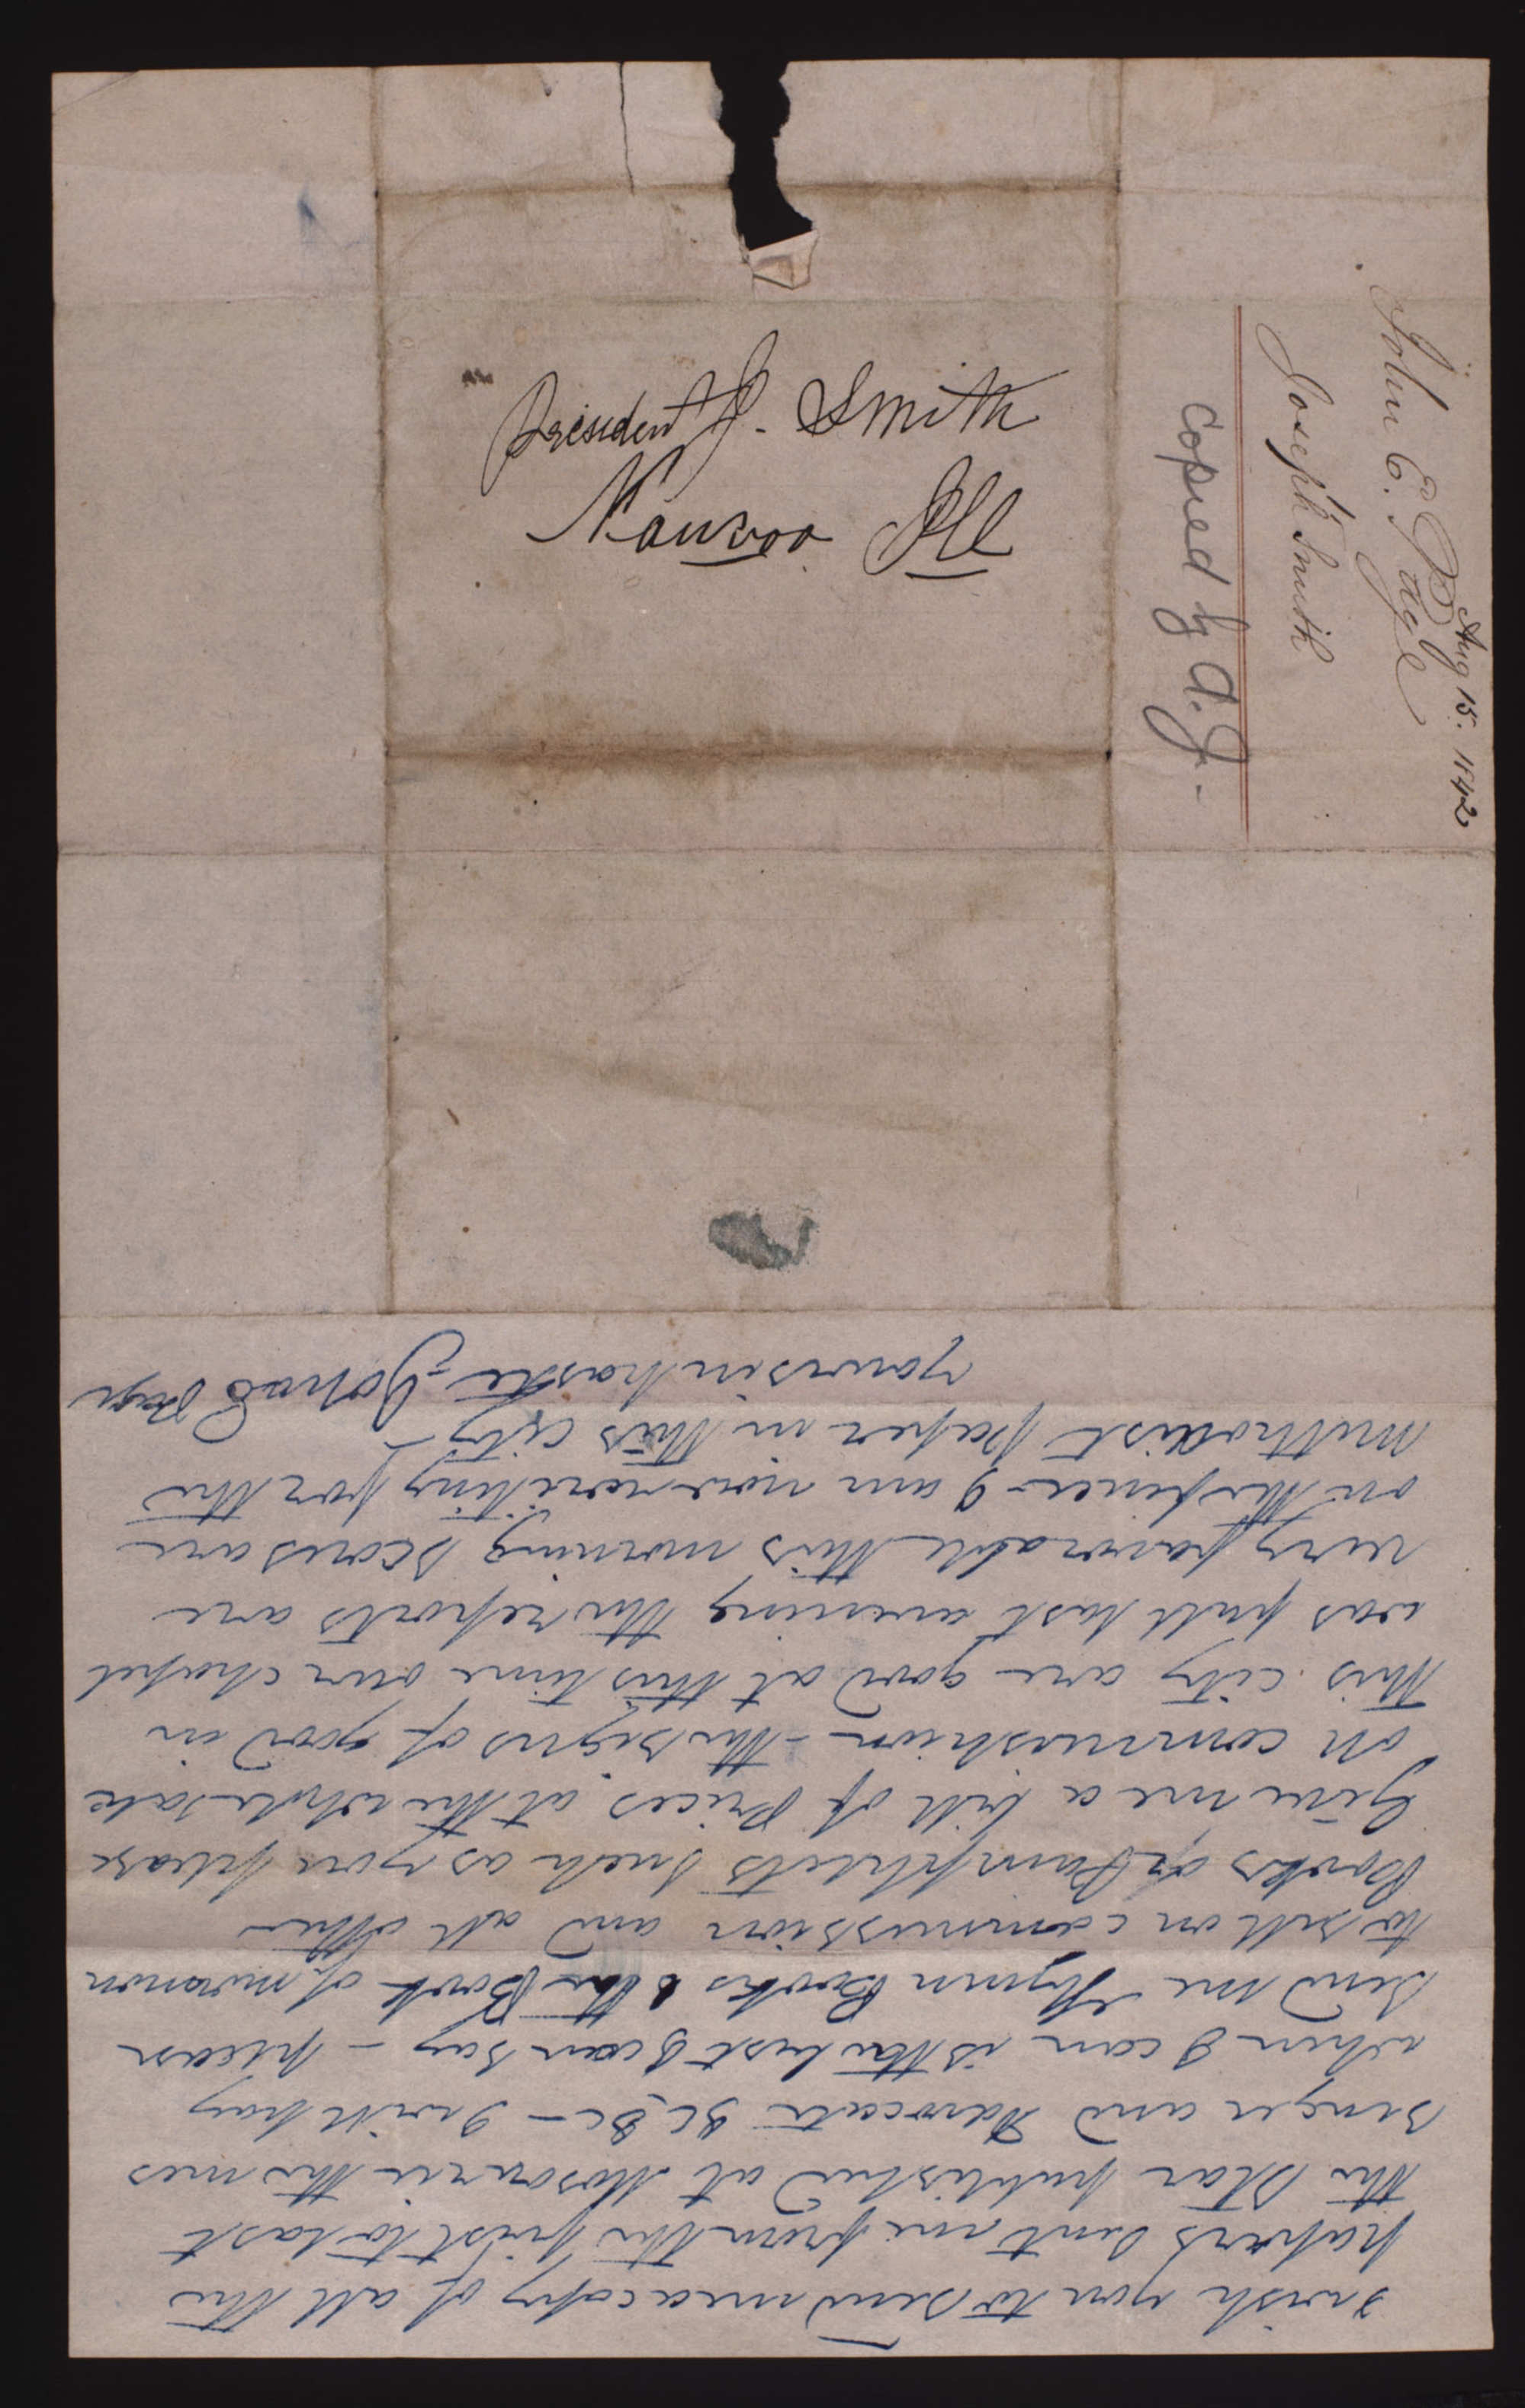 I wish you to send me a copy of all the
papers sent me from the first to last
the Star published at Mosourie the mes
senger and Advocate &c &c - I will pay
when I can is the best I can say - please
send me Hymn Books & the Book of mormon
to sell on commission and all other
Books or Pamphlets such as you please
give me a bill of Prices at the whole sale
on commishion - the signs of good in
this city are good at this time our chapel
was full last evening the reports are
very favorable this morning scores are
on the fence - I am now writing for the
Methodist paper in this city -
yours in haste John E Page
President J. Smith
Nauvoo Ill
Aug 15. 1842
John E. Page
Joseph Smith
Copied by A. J-